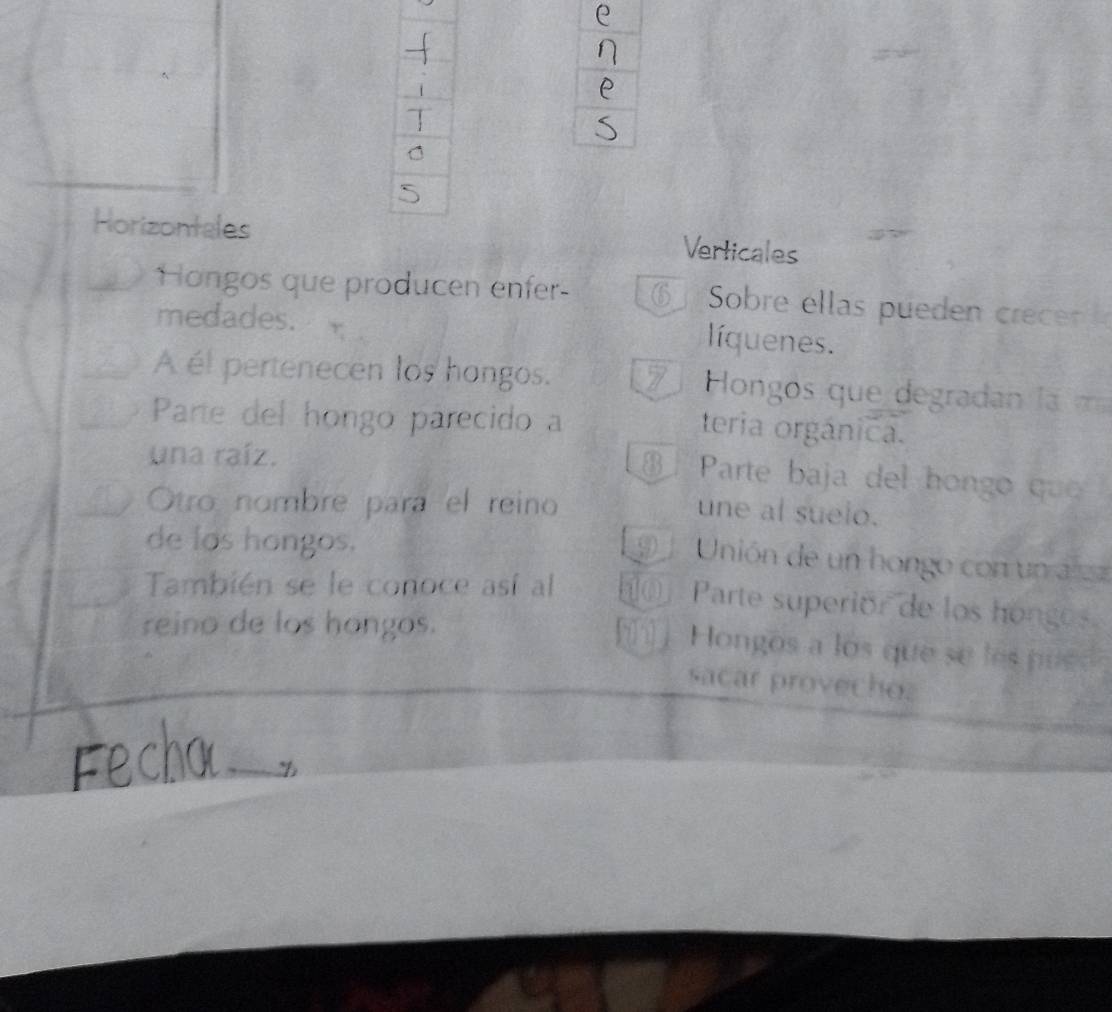 e
f n
i e
T S
o
S
Horizontales
Hongos que producen enfer-
medades.
A él pertenecen los hongos.
Parte del hongo parecido a
una raíz.
Otro nombre para el reino
de los hongos.
También se le conoce así al
reino de los hongos.
Verticales
6 Sobre ellas pueden crecer
líquenes.
7 Hongos que degradan la
teria orgánica.
8 Parte baja del hongo que
une al suelo.
9 Unión de un hongo con un
10 Parte superior de los hongos.
11 Hongos a los que se les
sacar provecho.
Fecha